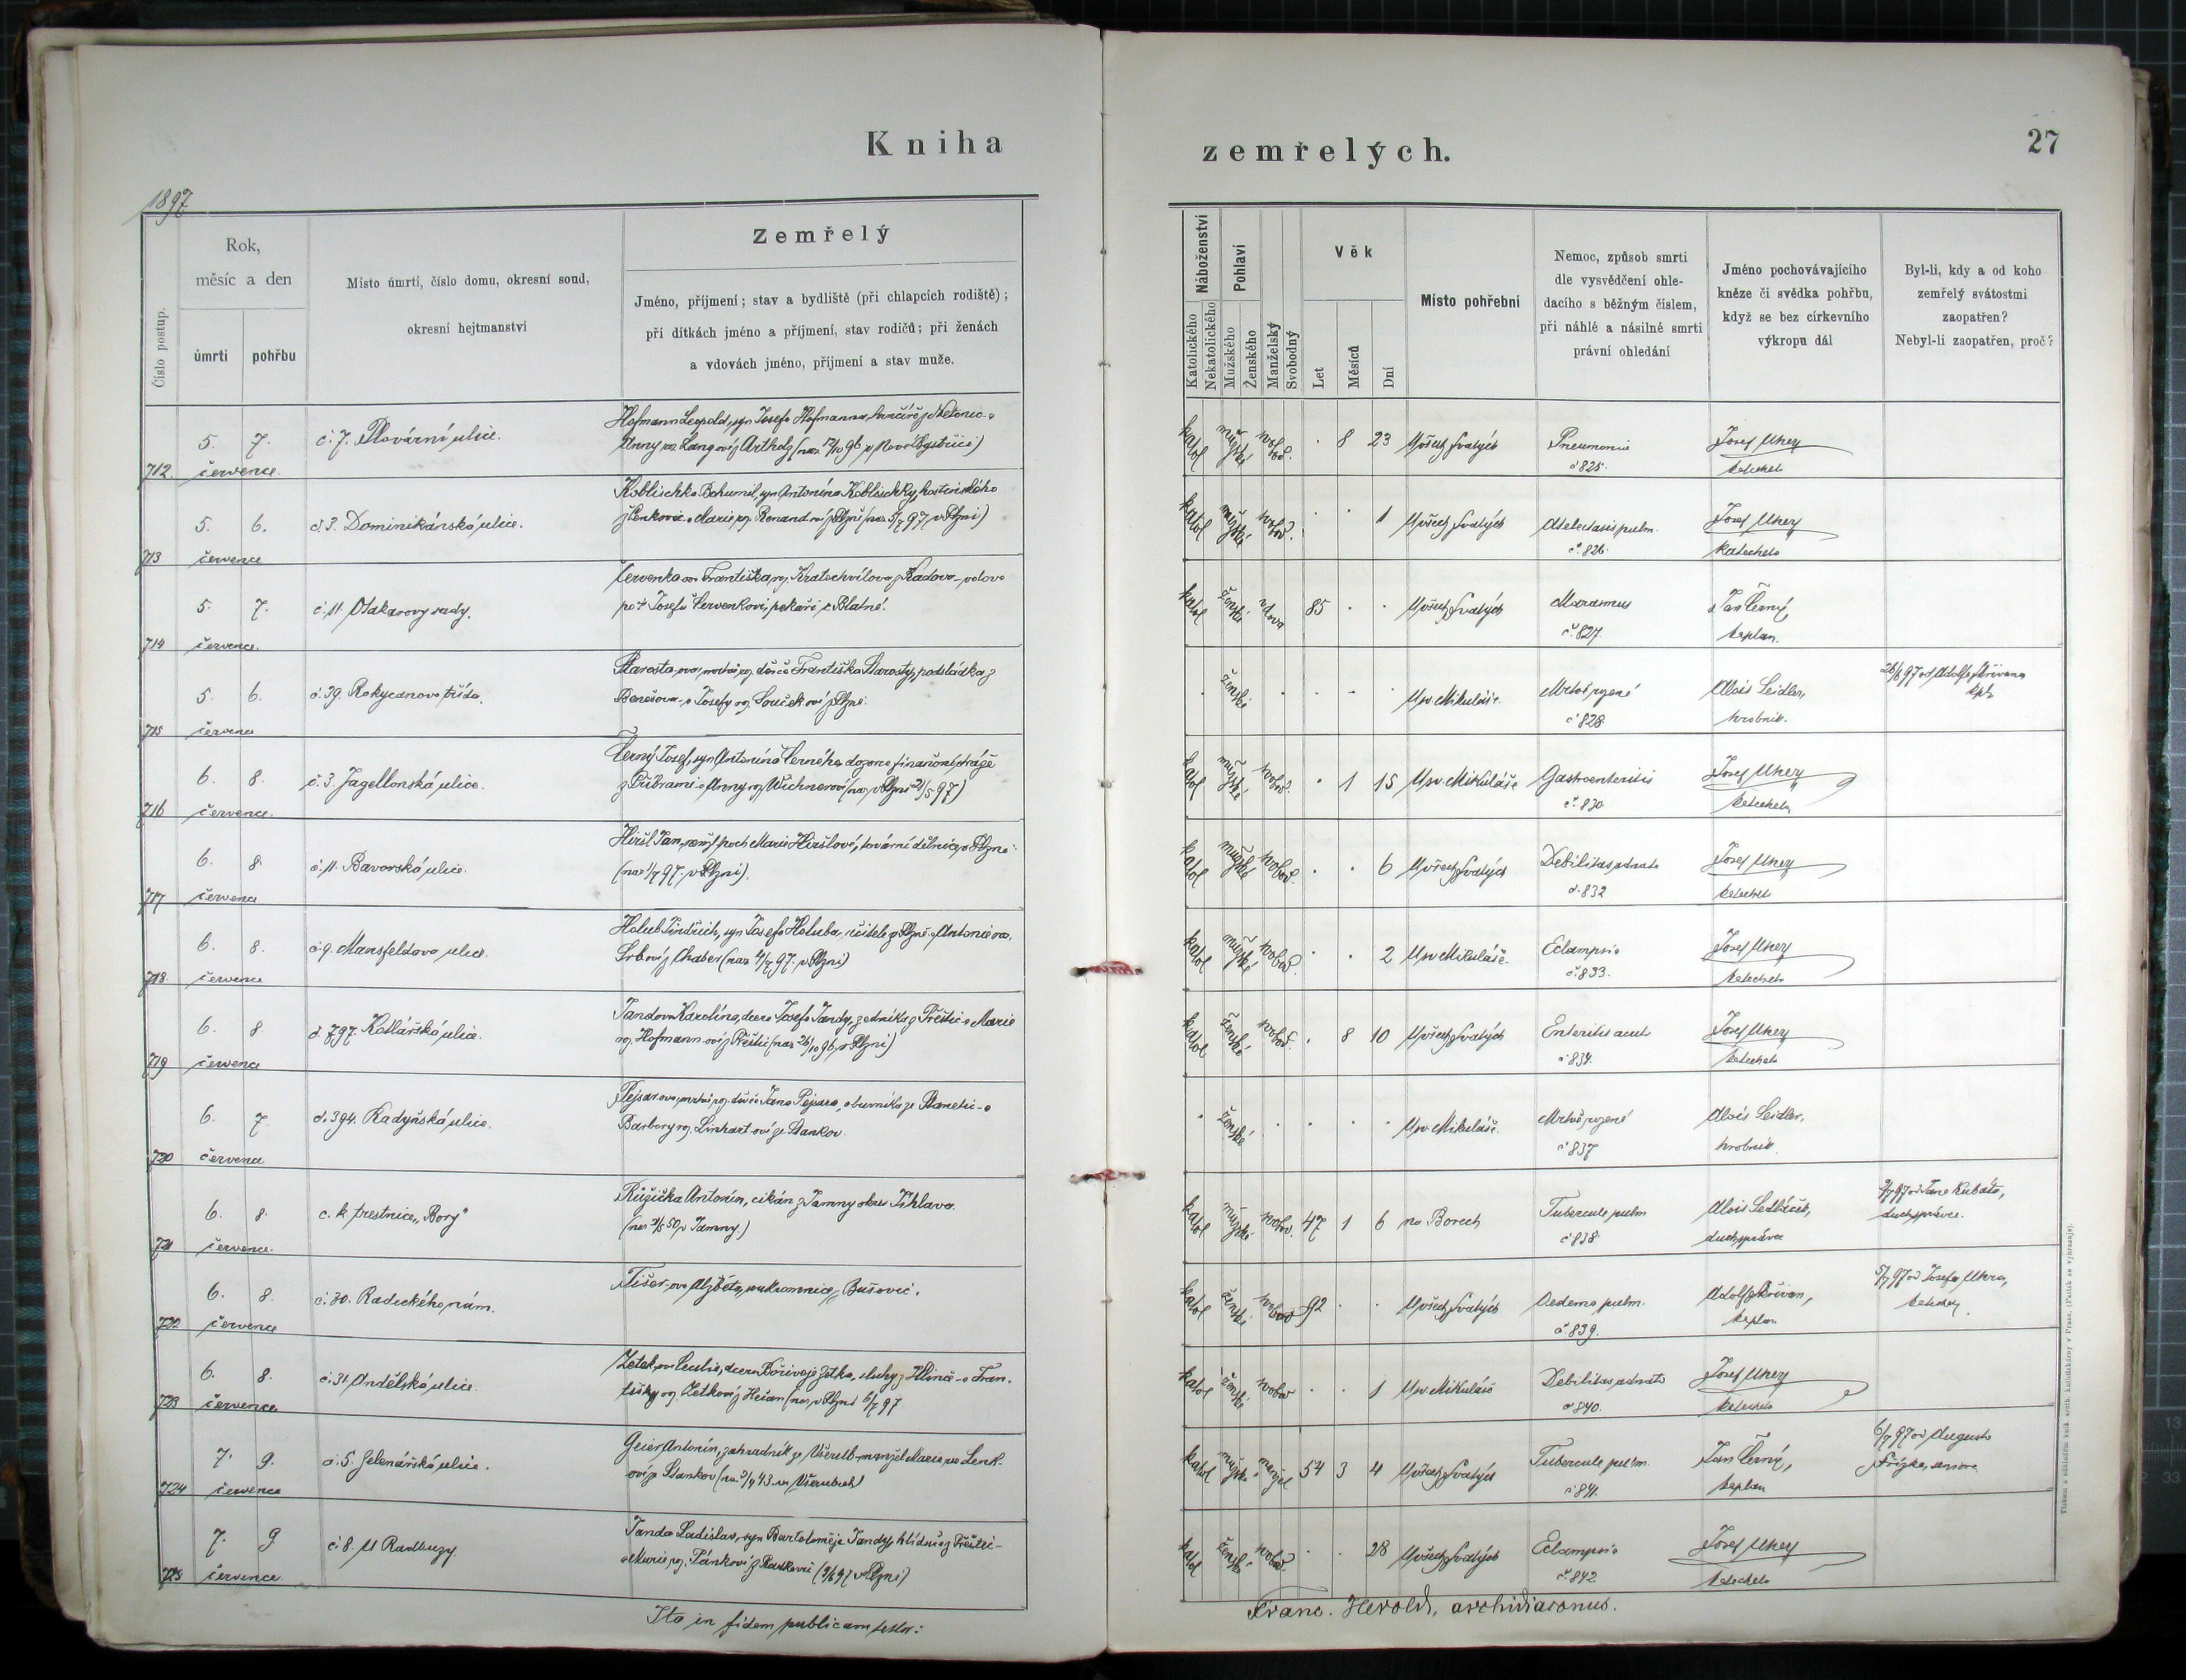 Kniha
zemřelých.
27
1897
Číslo postup.
Rok,
měsíc a den
úmrtí
pohřbu
Místo úmrtí, číslo domu, okresní soud,
okresní hejtmanství
Zemřelý
Jméno, příjmení; stav a bydliště (při chlapcích rodiště);
při dítkách jméno a příjmení, stav rodičů; při ženách
a vdovách jméno, příjmení a stav muže.
Náboženství
Katolického
Nekatolického
Pohlaví
Mužského
Ženského
Manželský
Svobodný
Věk
Let
Měsíců
Dní
Místo pohřební
Nemoc, způsob smrti
dle vysvědčení ohle-
dacího s běžným číslem,
při náhlé a násilné smrti
právní ohledání
Jméno pochovávajícího
kněze či svědka pohřbu,
když se bez církevního
výkropu dál
Byl-li, kdy a od koho
zemřelý svátostmi
zaopatřen?
Nebyl-li zaopatřen, proč?
712. 5. 7. července
č. 7. Plovární ulice.
Hofmann Leopold, syn Josefa Hofmanna,
Anny
katol mužské svobod. 8 23 U všech Svatých
Pneumonie č 825.
Josef Uhey katecheta
713 5. 6. července
č. 3. Dominikánská ulice.
Koblischka Bohumil, syn Antonína Koblischky, hostinského
z Úenkovic a Marie roz. Renandové z Plzně (nar. 5/7 97. v Plzni)
katol mužské svobod. 1 U všech Svatých
Atelectasis pulm. č. 826.
Josef Uhey katecheta
714 5. 7. července.
č. 11. Otakarovy sady.
Červenka ova Františka, roz. Kratochvílova z Kadova - vdova
po † Josefu Červenkovi, pekaři z Blatné.
katol ženské vdova 85 U všech Svatých
Marasmus č. 827.
Jan Černý, kaplan.
715 5. 6. července
č. 39. Rokycanova třída.
Starosta-ova, mrtvě roz. dítě Františka Starosty, podsládka z
Benešova a Josefy roz. Součkové z Plzně.
ženské U sv. Mikuláše.
Mrtvě rozené č 828.
Alois Seidler, hrobník.
716 6. 8. července.
č. 3. Jagellonská ulice.
Černý Josef, syn Antonína Černého, dozorce finanční stráže
z Příbrami a Anny roz. Wichnerové (nar. v Plzni 21/5 97)
katol mužské svobod. 1 15 U sv. Mikuláše
Gastroenteritis č. 830
Josef Uhey katecheta
717 6. 8. července
č. 11. Bavorská ulice.
Hiršl Jan, Marie Hiršlové, tovární dělnice v Plzni
(nar. 1/7 97. v Plzni).
katol mužské svobod. 6 U všech Svatých
Debilitas adnata č. 832
Josef Uhey katecheta
718. 6. 8. července
č. 9. Mansfeldova ulice.
Holub Jindřich, syn Josefa Holuba, učitele z Plzně a Antonie roz.
(nar. 4/7 97. v Plzni)
katol mužské svobod. 2 U sv. Mikuláše.
Eclampsie č. 833.
Josef Uhey katecheta
719 6. 8. července
č. 797. Kotlářská ulice.
Jandova Karolína, dcera Josefa Jandy, zedníka z Přeštic a Marie
roz. Hofmannové z Přeštic (nar. 26/10 96, v Plzni)
katol ženské svobod. 8 10 U všech Svatých
Enteritis acut. č 834.
Josef Uhey katecheta
720 6. 7. července
č. 394. Radyňská ulice.
Pejsar-ova, mrtvě roz. dítě Jana Pejsara, obuvníka ze
Barbory roz. Linhartové ze Stankov.
ženské U sv. Mikuláše.
Mrtvě rozené č 837
Alois Seidler, hrobník.
721 6. 8. července.
c. k. trestnice „Bory"
Růžička Antonín, cikán z Jamny okres Jihlava.
(nar. 50, v Jamny)
katol mužské svobod. 47 1 6 na Borech
Tubercule pulm č 838.
Alois Sedláček, duch. správce
3/7 97 od Jana Kubáta,
duch. správce.
722 6. 8. července
č. 30. Radeckého nám.
Tišer-ova Alžběta, soukromnice z Bušovic.
katol ženské svobod 92 U všech Svatých
Oedema pulm. č. 839.
Adolf Skřivan, kaplan
5/7 97 od Josefa Uhra,
723 6. 8. července
č. 31. Andělská ulice.
Zetek-ova Cecilie, dcera Bořivoje Zetka, sluhy z Hlince a Fran-
tišky roz. Zetkové z Hečan (nar. v Plzni 6/7 97
katol ženské svobod 1 U sv. Mikuláše
Debilitas adnata č 840.
Josef Uhey katecheta
724 7. 9. července
č. 5. Jelenářská ulice.
Geier Antonín, zahradník z Všerub, manžel Marie roz. Lenk-
ové ze Stankov (nar. 3/4 43 ve Všerubech)
katol mužské manžel 54 3 4 U všech Svatých
Tubercule pulm. č 841.
Jan Černý, kaplan
6/7 97 od Augusta
725 7. 9 července
č. 8. U Radbuzy.
Janda Ladislav, syn Bartoloměje Jandy, hlídače z Přeštic -
a Marie, roz. Pánkové z Radkovic (9/6 97 v Plzni)
katol ženské svobod. 28 U všech Svatých
Eclampsie č. 842.
Josef Uhey katecheta
Ita in fidem publicam testor:
Franc. Herold, archidiaconus.